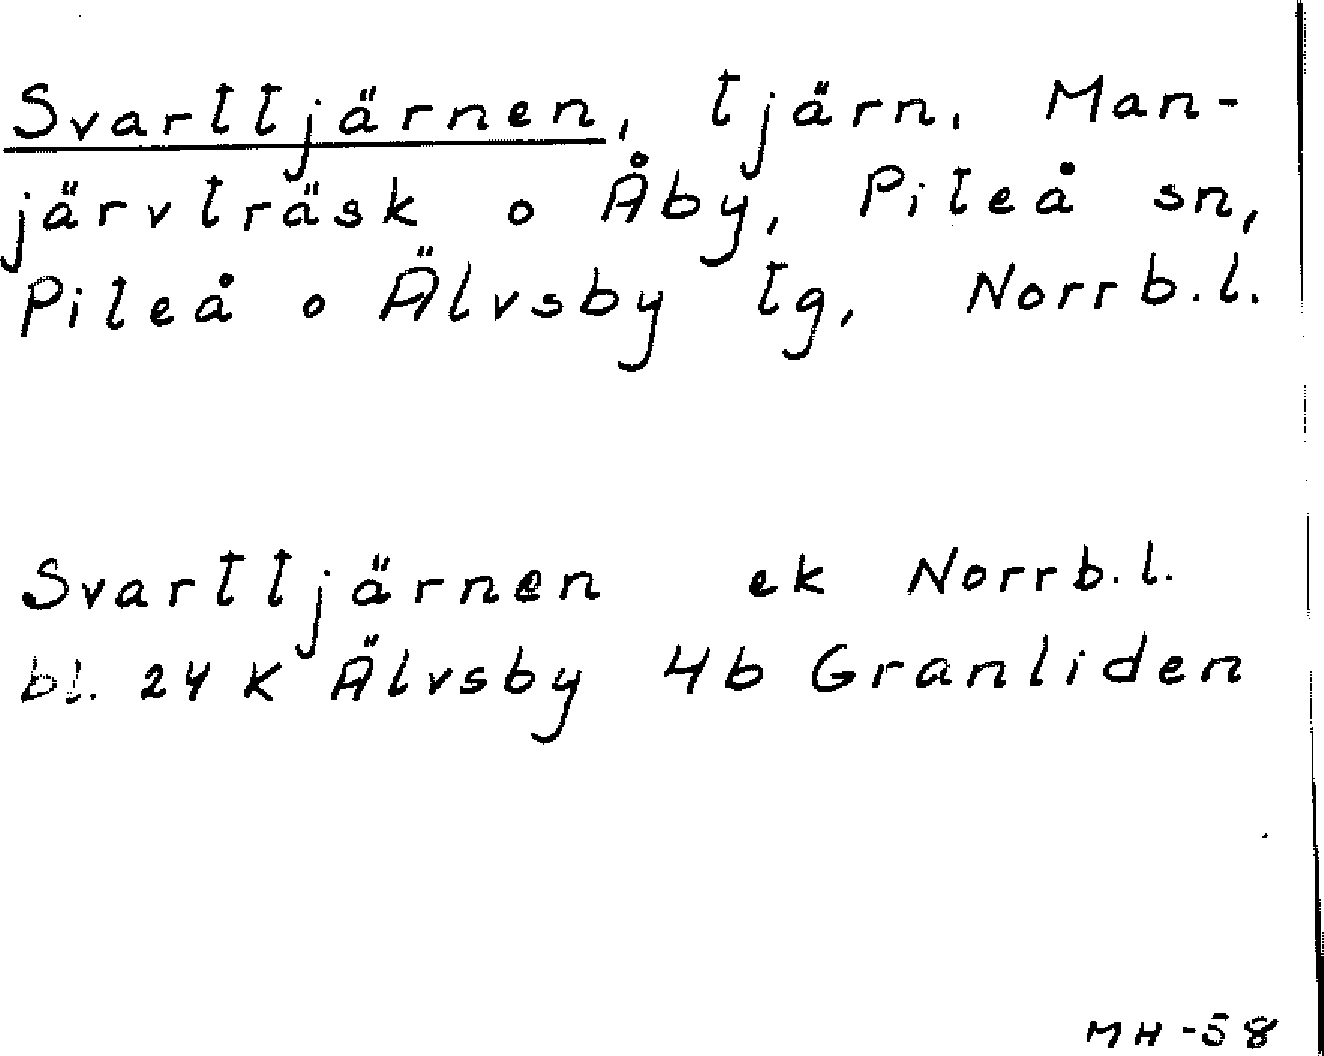 Svarttjärnen, tjärn, Man-
järvträsk o Åby, Piteå sn,
Piteå o Älvsby tg, Norrb.l.
Svarttjärnen ek Norrb.l.
bl. 24 K Älvsby 4b Granliden
MH-58